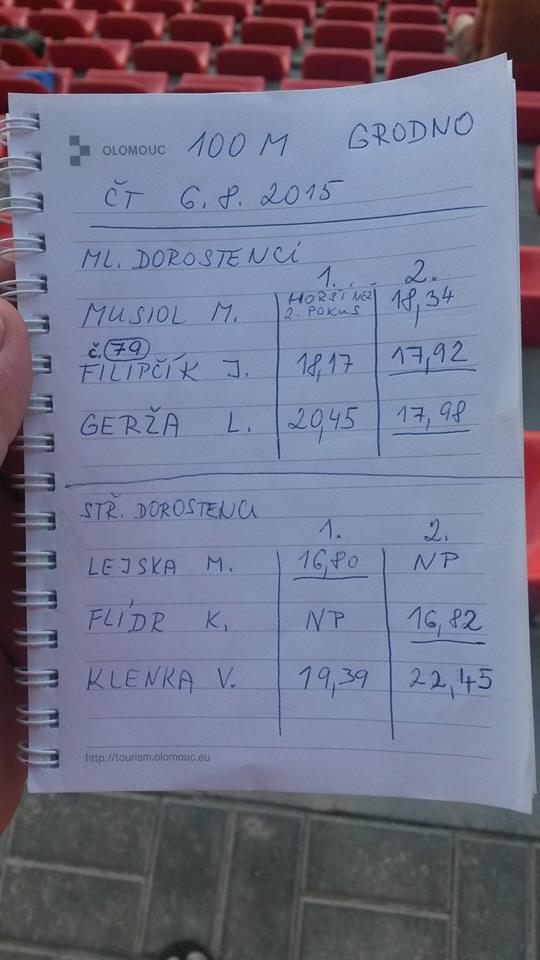 OLOMOUC 100 M GRODNO
ČT 6. 8. 2015
ML. DOROSTENCÍ
1. 2.
MUSIOL M. HORŠÍ NEŽ 2. POKUS 18,34
č. 79
FILIPČÍK J. 18,17 17,92
GERŽA L. 20,45 17,98
STŘ. DOROSTENCI
1. 2.
LEJSKA M. 16,80 NP
FLÍDR K. NP 16,82
KLENKA V. 19,39 22,45
http://tourism.olomouc.eu